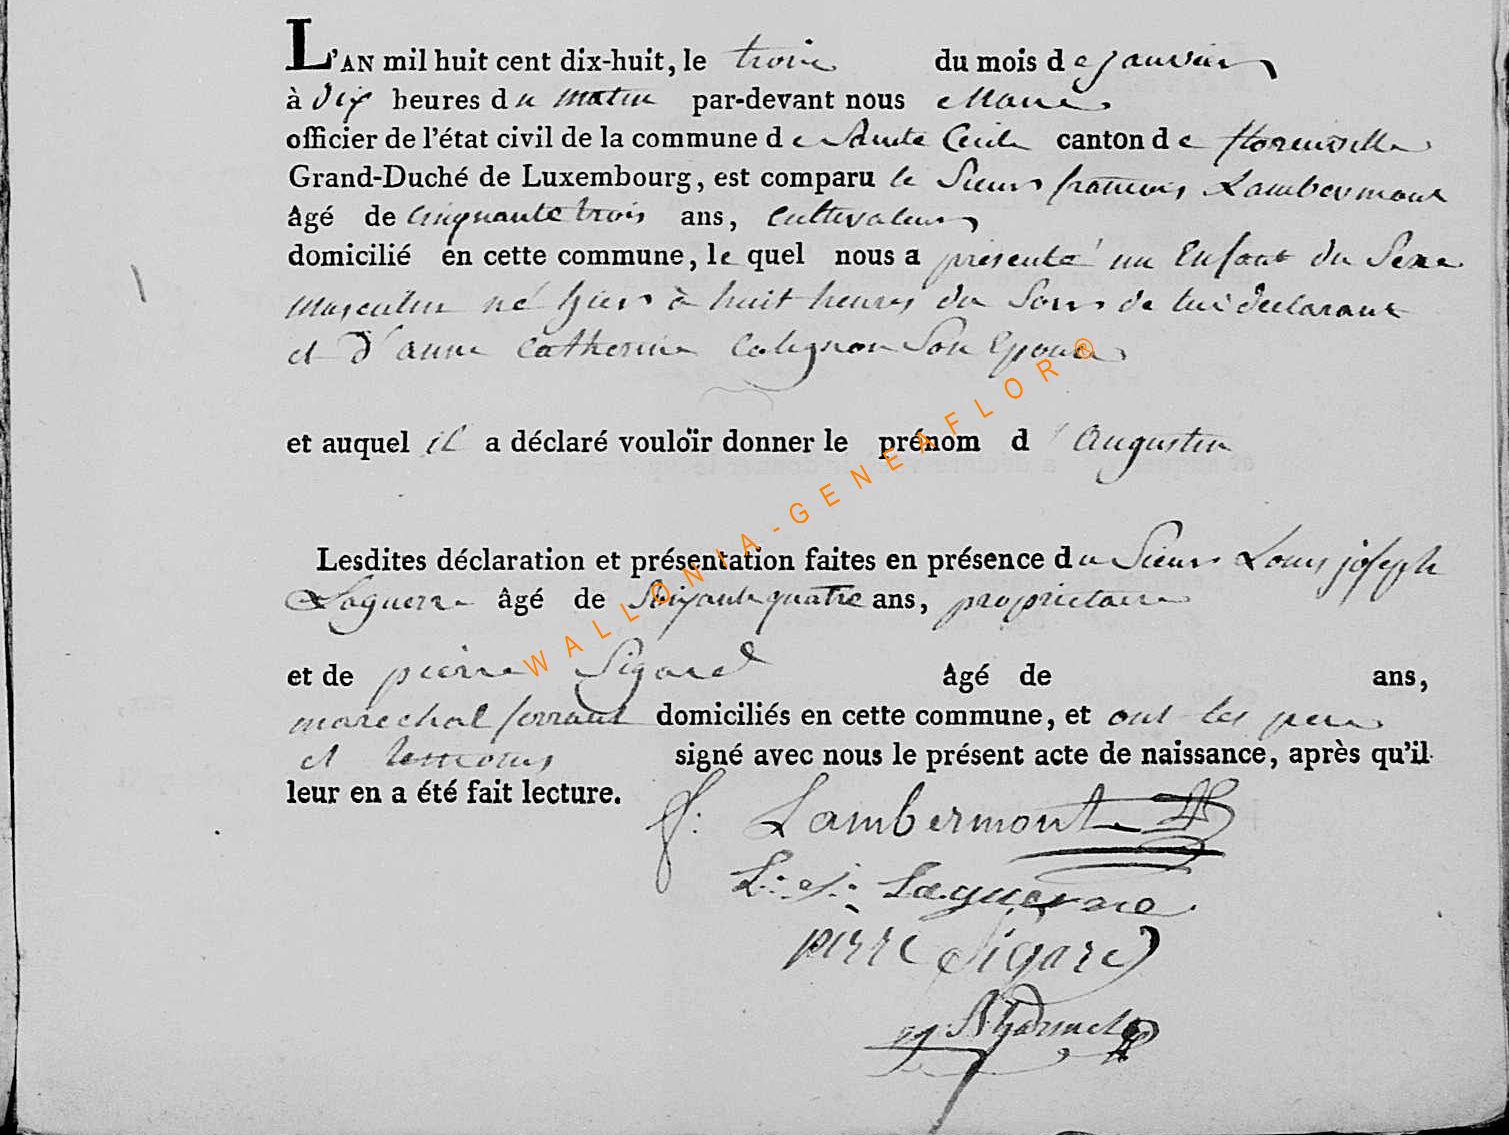 L'AN mil huit cent dix-huit, le trois du mois de janvier
à dix heures du matin par-devant nous Maire
officier de l'état civil de la commune de Sainte Cecile canton de florenville
Grand-Duché de Luxembourg, est comparu le Sieur francois Lambermont
âgé de cinquante trois ans, cultivateur
domicilié en cette commune, le quel nous a présenté un Enfant du Sexe
Masculin né hier à huit heures du Soir de lui déclarant
et d'anne catherine Colignon Son Epouse
et auquel il a déclaré vouloir donner le prénom d'Augustin
Lesdites déclaration et présentation faites en présence du Sieur Louis joseph
Laguerre âgé de Soixante quatre ans, propriétaire
et de pierre Sigard âgé de ans,
marechal ferrant domiciliés en cette commune, et ont les pere
et temoins signé avec nous le présent acte de naissance, après qu'il
leur en a été fait lecture.
f: Lambermont
L: J: Laguerre
pirre Sigard
WALLONIA-GENEAFLOR®